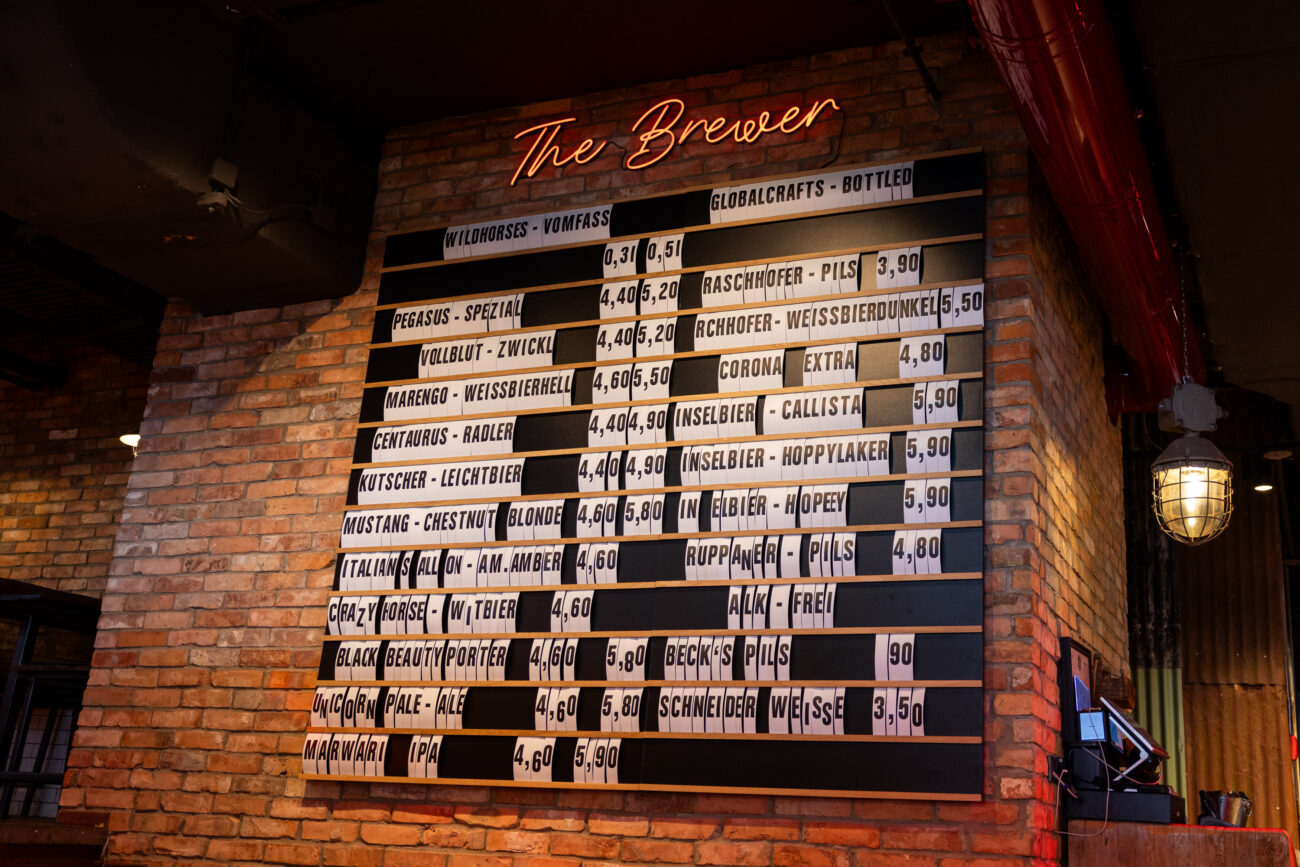 The Brewer
WILDHORSES - VOMFASS GLOBALCRAFTS - BOTTLED
0,3l 0,5l
PEGASUS - SPEZIAL 4,40 5,20 RASCHHOFER - PILS 3,90
VOLLBLUT - ZWICKL 4,40 5,20 RCHHOFER - WEISSBIERDUNKEL 5,50
MARENGO - WEISSBIERHELL 4,60 5,50 CORONA EXTRA 4,80
CENTAURUS - RADLER 4,40 4,90 INSELBIER - CALLISTA 5,90
KUTSCHER - LEICHTBIER 4,40 4,90 INSELBIER - HOPPYLAKER 5,90
MUSTANG - CHESTNUT BLONDE 4,60 5,80 IN ELBIER - HOPEY 5,90
ITALIAN'S ALL ON - AM.AMBER 4,60 RUPPANER - PILS 4,80
CRAZY HORSE - WITBIER 4,60 ALK - FREI
BLACK BEAUTY PORTER 4,60 5,80 BECK'S PILS 90
UNICORN PALE - ALE 4,60 5,80 SCHNEIDER WEISSE 3,50
MARWARI IPA 4,60 5,90